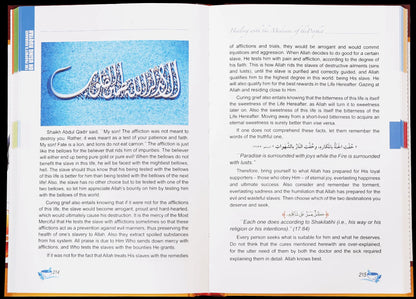 Shaikh Abdul Qadir said, " My son! The affliction was not meant to
destroy you. Rather, it was meant as a test of your patience and faith.
My son! Fate is a lion, and lions do not eat carrion." The affliction is just
like the bellows for the believer that rids him of impurities. The believer
will either end up being pure gold or pure evil! When the bellows do not
benefit the slave in this life, he will be faced with the mightiest bellows,
hell. The slave should thus know that his being tested with the bellows
of this life is better for him than being tested with the bellows of the next
life! Also, the slave has no other choice but to be tested with one of the
two bellows, so let him appreciate Allah's bounty on him by testing him
with the bellows of this world.
Curing grief also entails knowing that if it were not for the afflictions
of this life, the slave would become arrogant, proud and hard-hearted,
which would ultimately cause his destruction. It is the mercy of the Most
Merciful that He tests the slave with afflictions sometimes so that these
afflictions act as a prevention against evil manners, thus preserving the
health of one's slavery to Allah. Also they extract spoiled substances
from his system. All praise is due to Him Who sends down mercy with
afflictions, and Who tests the slaves with the bounties He grants.
If it was not for the fact that Allah treats His slaves with the remedies
214
Healing with the Medicine of the Prophet
of afflictions and trials, they would be arrogant and would commit
injustices and aggression. When Allah decides to do good for a certain
slave, He tests him with pain and affliction, according to the degree of
his faith. This is how Allah rids the slaves of destructive ailments (sins
and lusts), until the slave is purified and correctly guided, and Allah
qualifies him to the highest degree in this world: being His slave. He
will also qualify him for the best rewards in the Hereafter: Gazing at
Allah and residing close to Him.
Curing grief also entails knowing that the bitterness of this life is itself
the sweetness of the Life Hereafter, as Allah will turn it to sweetness
later on. Also the sweetness of this life is itself the bitterness of the Life
Hereafter. Moving away from a short-lived bitterness to acquire an
eternal sweetness is surely better than vise versa.
If one does not comprehend these facts, let them remember the
words of the truthful one,
« حُفَّتِ الْجَنَّةُ بِالْمَكَارِهِ، وَحُفَّتِ النَّارُ بِالشَّهَوَاتِ »
"Paradise is surrounded with joys while the Fire is surrounded
with lusts."
Therefore, bring yourself to what Allah has prepared for His loyal
supporters - those who obey Him - of eternal joy, everlasting happiness
and ultimate success. Also consider and remember the torment,
everlasting sadness and the humiliation that Allah has prepared for the
evil and wasteful slaves. Then choose which of the two destinations you
deserve and seek.
"Each one does according to Shakilatihi (i.e., his way or his
religion or his intentions)." (17:84)
Every person seeks what is suitable for him and what he deserves.
Do not think that the cures mentioned herewith are over-explained,
for the utter need of them by both the doctor and the sick required
explaining them in detail. Allah knows best.
215